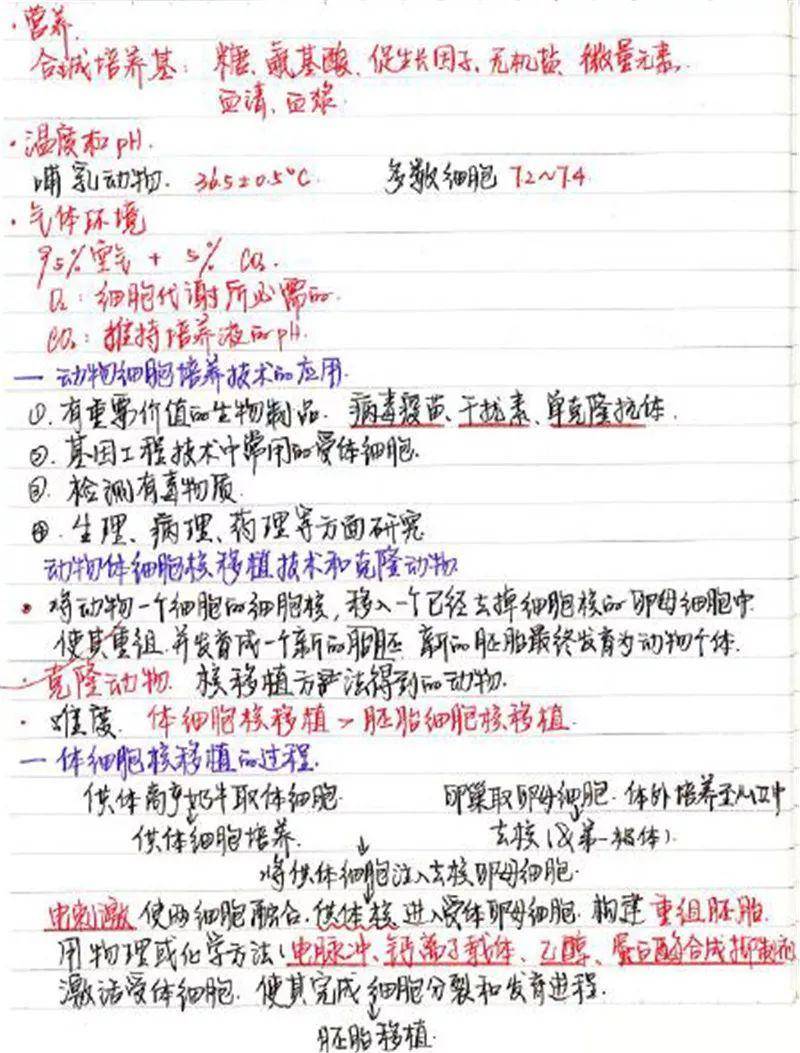 ·营养.
合成培养基: 糖、氨基酸、促生长因子、无机盐、微量元素.
血清、血浆.
·温度和pH.
哺乳动物. 36.5±0.5℃. 多数细胞 7.2~7.4
·气体环境
95%空气 + 5% CO₂.
O₂: 细胞代谢所必需的.
CO₂: 维持培养液的pH.
一 动物细胞培养技术的应用.
①. 有重要价值的生物制品. 病毒疫苗、干扰素、单克隆抗体.
②. 基因工程技术中常用的受体细胞.
③. 检测有毒物质.
④. 生理、病理、药理等方面研究
动物体细胞核移植技术和克隆动物.
· 将动物一个细胞的细胞核, 移入一个已经去掉细胞核的卵母细胞中.
使其重组.并发育成一个新的胚胎. 新的胚胎最终发育为动物个体.
· 克隆动物. 核移植方法得到的动物.
· 难度. 体细胞核移植 > 胚胎细胞核移植.
一 体细胞核移植的过程.
供体高产奶牛取体细胞. 卵巢取卵母细胞. 体外培养至MⅡ中
↓
供体细胞培养. 去核(及第一极体).
↓
将供体细胞注入去核卵母细胞.
↓
电刺激 使两细胞融合. 供体核 进入受体卵母细胞. 构建 重组胚胎.
用物理或化学方法(电脉冲、钙离子载体、乙醇、蛋白酶合成抑制剂
激活受体细胞. 使其完成细胞分裂和发育进程.
↓
胚胎移植.